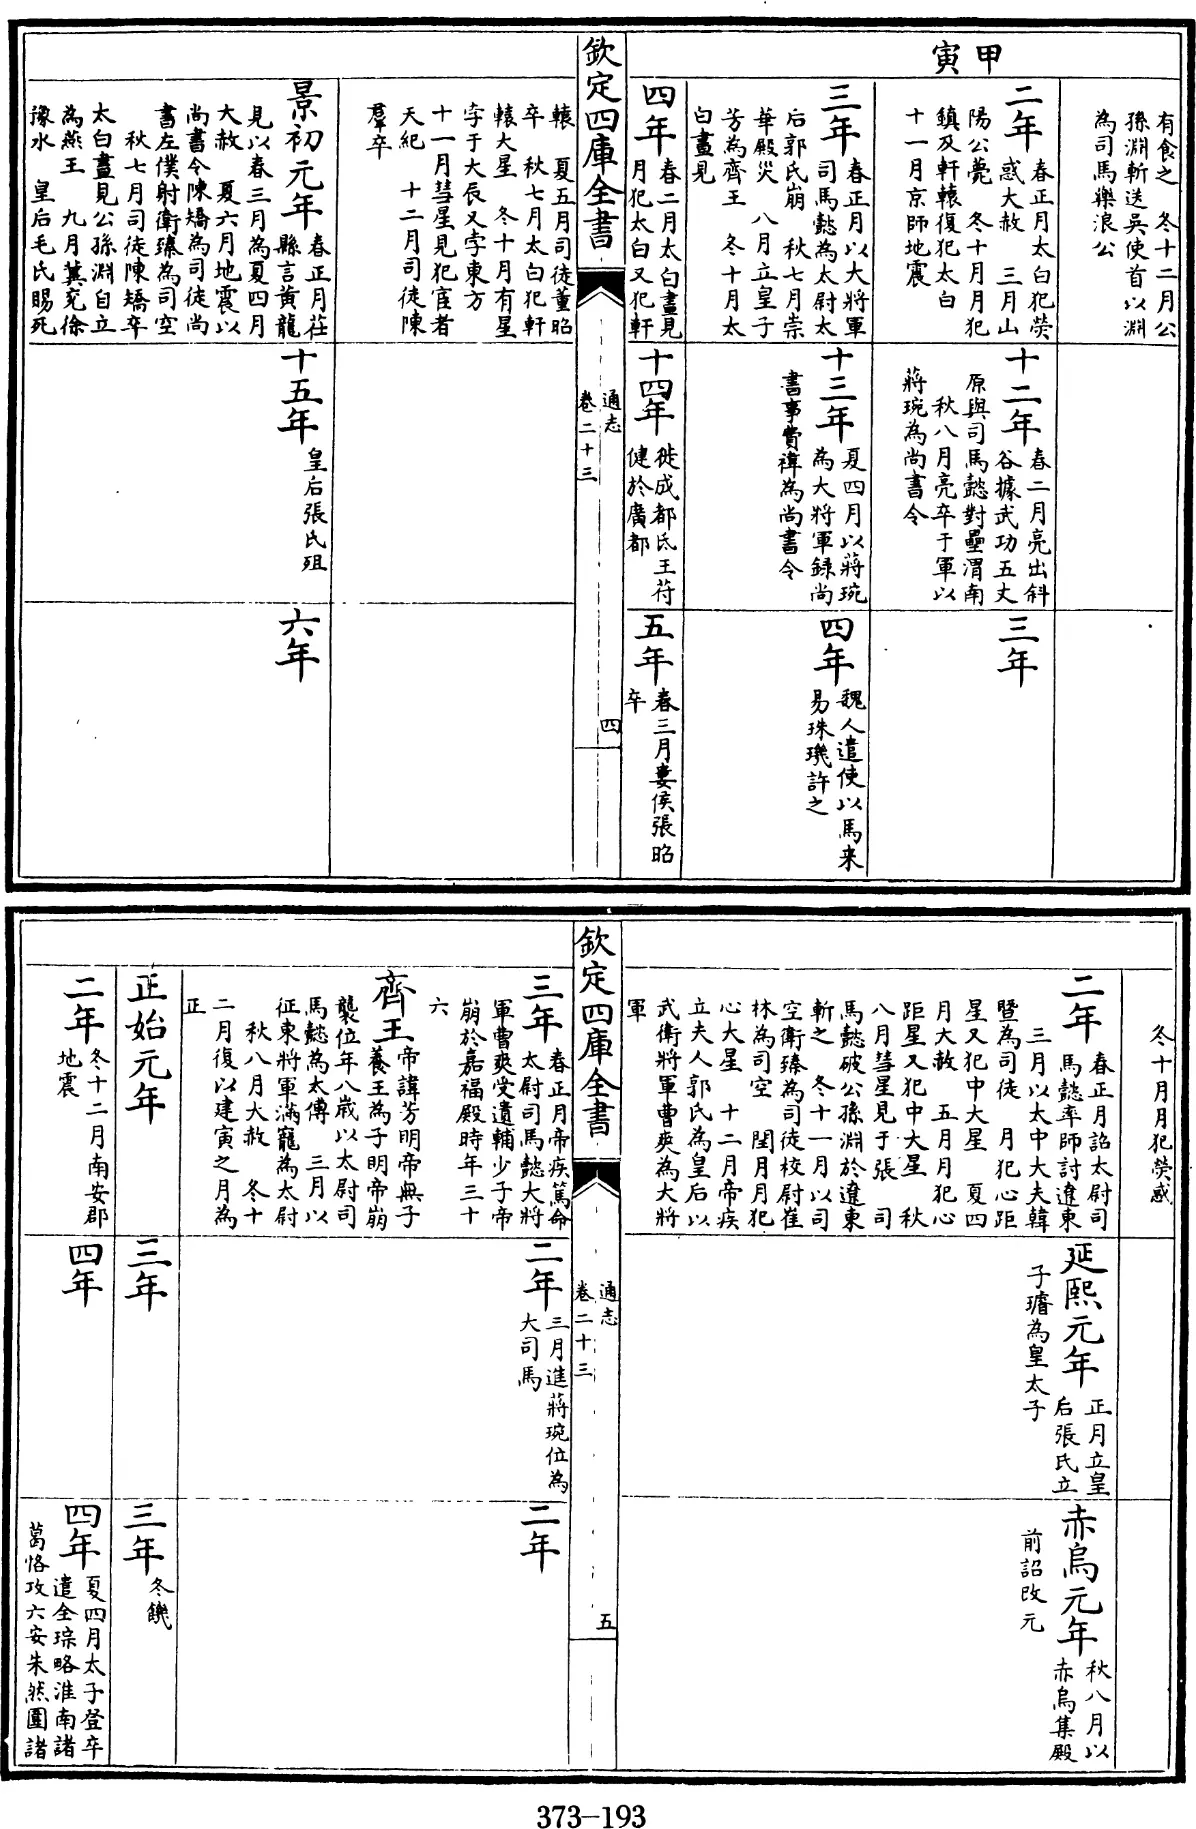 甲寅
有食之　冬十二月公
孫淵斬送吳使首以淵
為司馬樂浪公
二年
春正月太白犯熒
惑大赦　三月山
陽公薨　冬十月月犯
鎮及軒轅復犯太白
十一月京師地震
十二年
春二月亮出斜
谷據武功五丈
原與司馬懿對壘渭南
秋八月亮卒于軍以
蔣琬為尚書令
三年
三年
春正月以大將軍
司馬懿為太尉太
后郭氏崩　秋七月崇
華殿災　八月立皇子
芳為齊王　冬十月太
白晝見
十三年
夏四月以蔣琬
為大將軍録尚
書事費禕為尚書令
四年
魏人遣使以馬来
易珠璣許之
四年
春二月太白晝見
月犯太白又犯軒
十四年
徙成都氐王苻
健於廣都
五年
春三月婁侯張昭
卒
欽定四庫全書
通志
卷二十三
四
轅　夏五月司徒董昭
卒　秋七月太白犯軒
轅大星　冬十月有星
孛于大辰又孛東方
十一月彗星見犯宦者
天紀　十二月司徒陳
羣卒
景初元年
春正月茌
縣言黄龍
見以春三月為夏四月
大赦　夏六月地震以
尚書令陳矯為司徒尚
書左僕射衛臻為司空
秋七月司徒陳矯卒
太白晝見公孫淵自立
為燕王　九月冀兖徐
豫水　皇后毛氏賜死
十五年
皇后張氏殂
六年
冬十月月犯熒惑
二年
春正月詔太尉司
馬懿率師討遼東
三月以太中大夫韓
暨為司徒　月犯心距
星又犯中大星　夏四
月大赦　五月月犯心
距星又犯中大星　秋
八月彗星見于張　司
馬懿破公孫淵於遼東
斬之　冬十一月以司
空衛臻為司徒校尉崔
林為司空　閏月月犯
心大星　十二月帝疾
立夫人郭氏為皇后以
武衛將軍曹爽為大將
軍
延熙元年
正月立皇
后張氏立
子璿為皇太子
赤烏元年
秋八月以
赤烏集殿
前詔改元
欽定四庫全書
通志
卷二十三
五
三年
春正月帝疾篤命
太尉司馬懿大將
軍曹爽受遺輔少子帝
崩於嘉福殿時年三十
六
二年
三月進蔣琬位為
大司馬
二年
齊王
帝諱芳明帝無子
養王為子明帝崩
襲位年八歳以太尉司
馬懿為太傅　三月以
征東將軍滿寵為太尉
秋八月大赦　冬十
二月復以建寅之月為
正
正始元年
三年
三年
冬饑
二年
冬十二月南安郡
地震
四年
四年
夏四月太子登卒
遣全琮略淮南諸
葛恪攻六安朱然圍諸
373-193